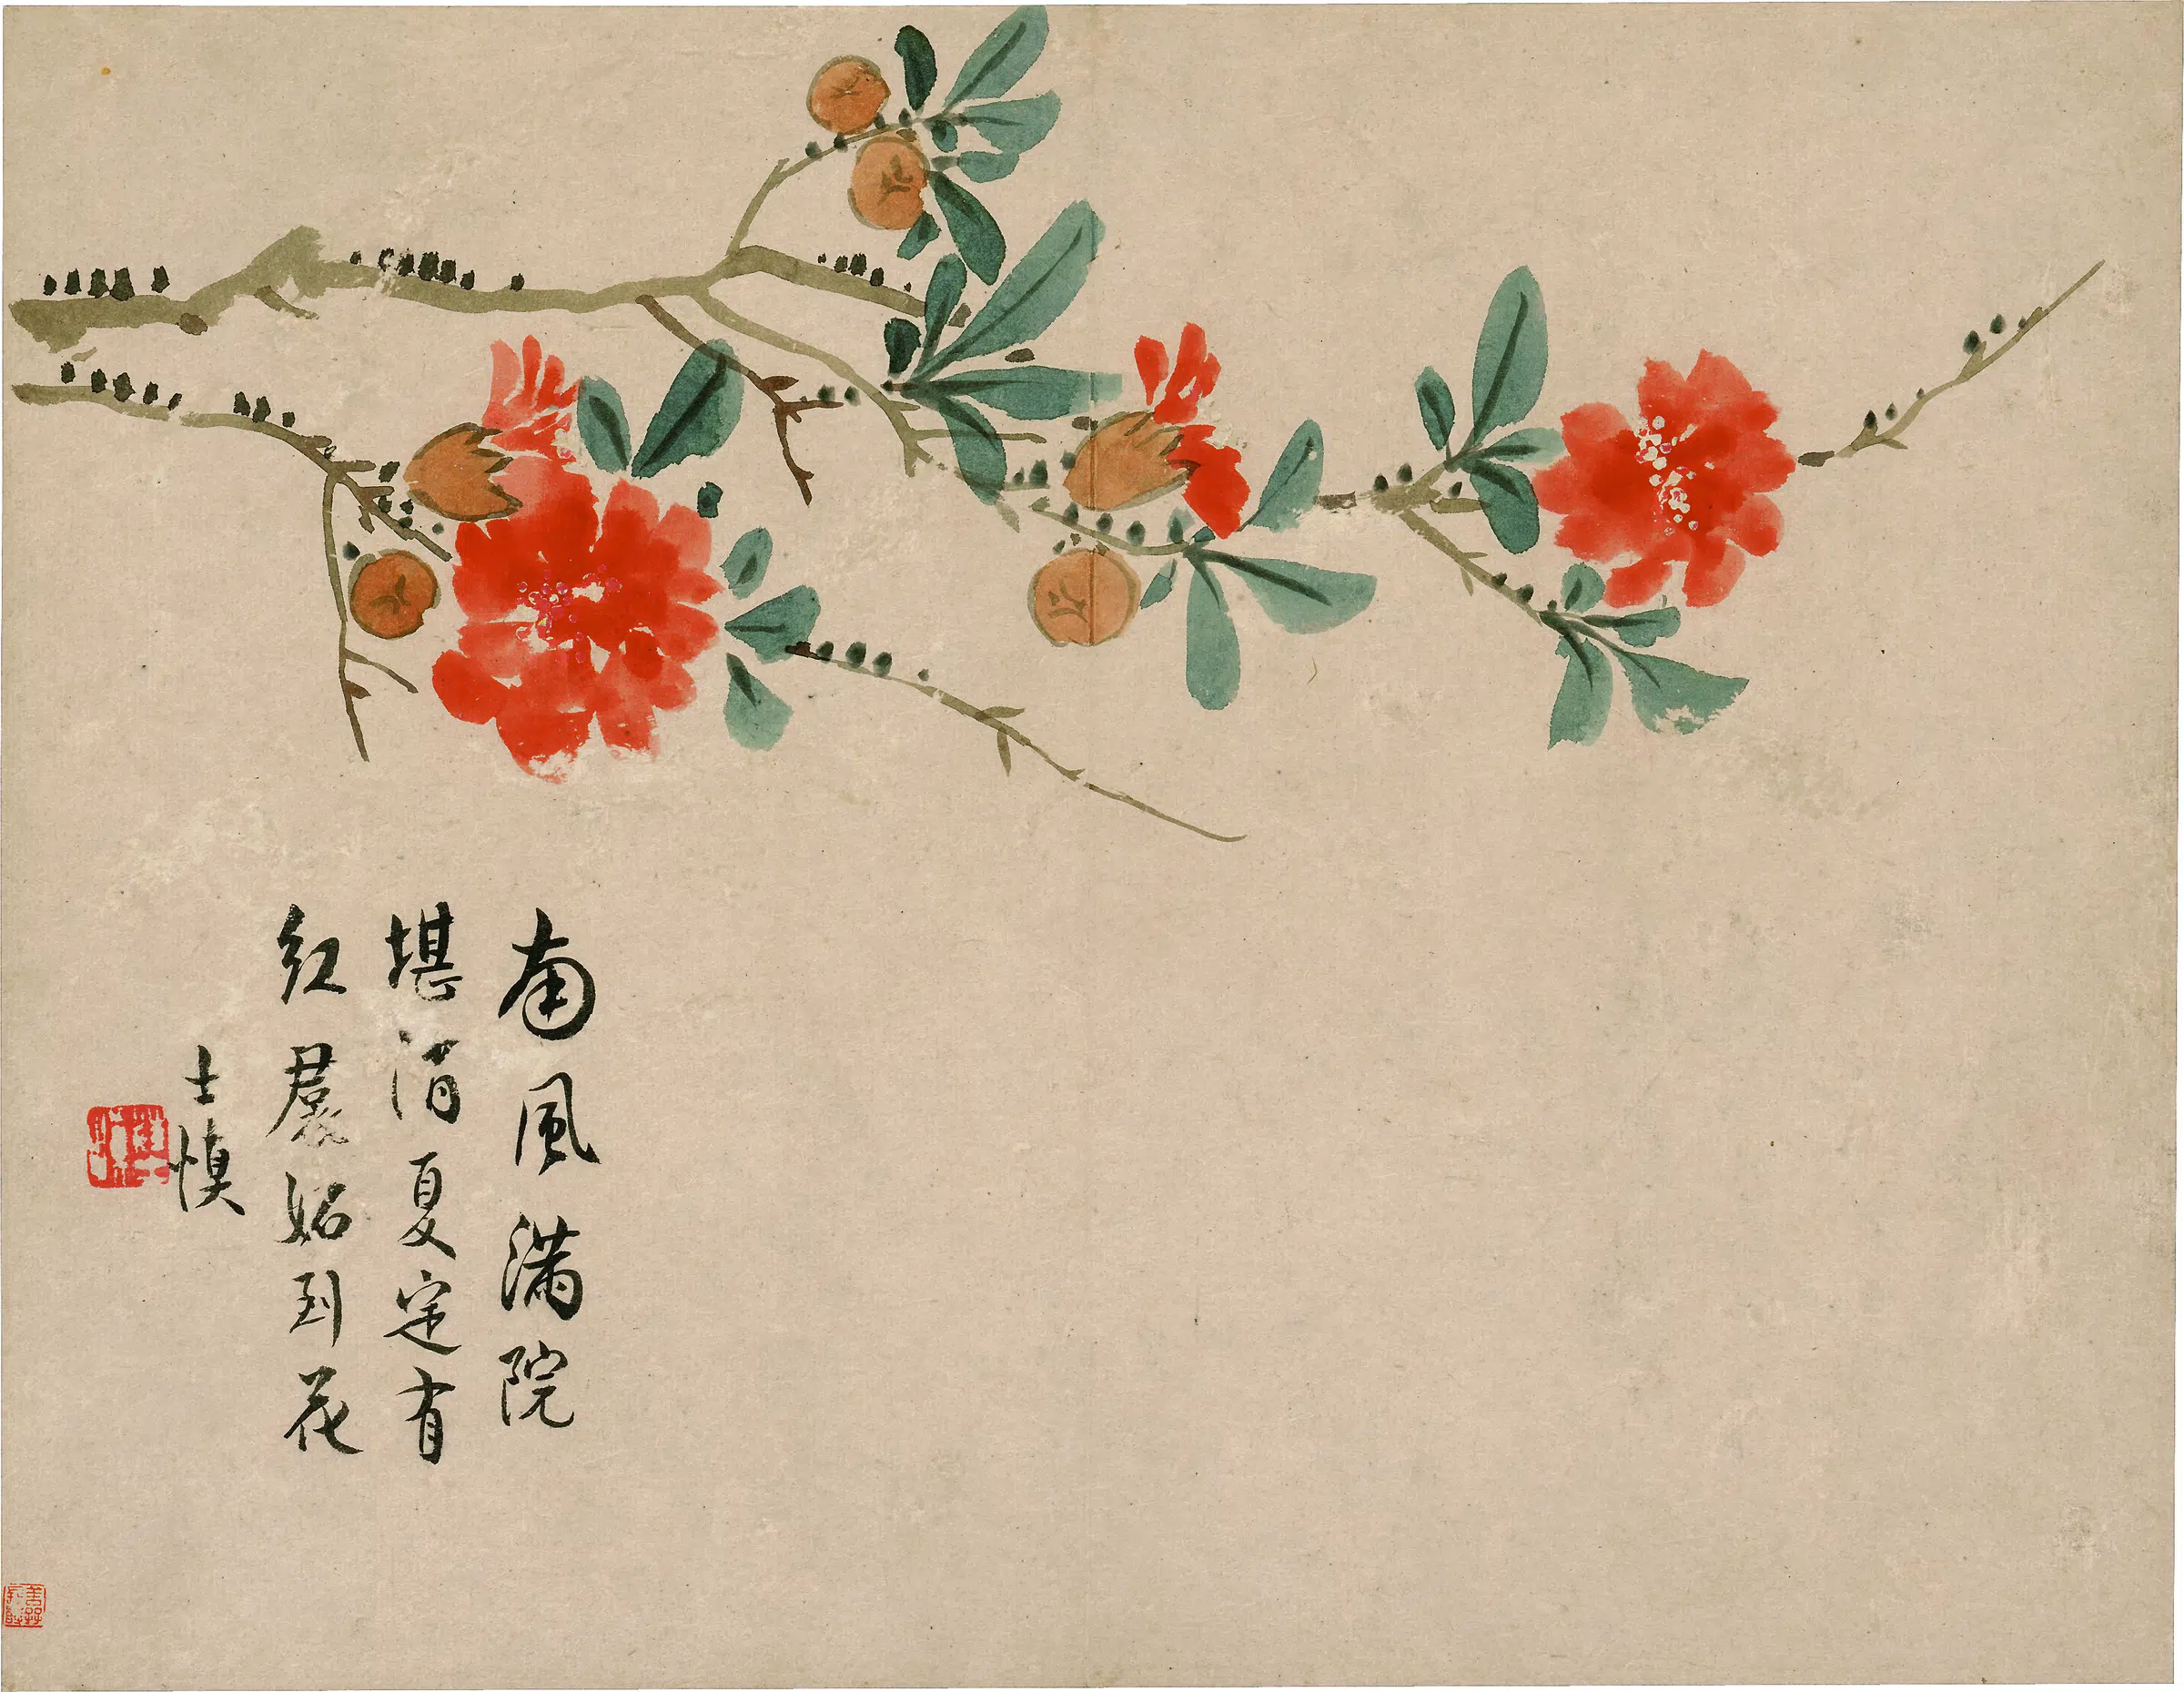 南風滿院
堪消夏定有
紅裠始到花
士慎